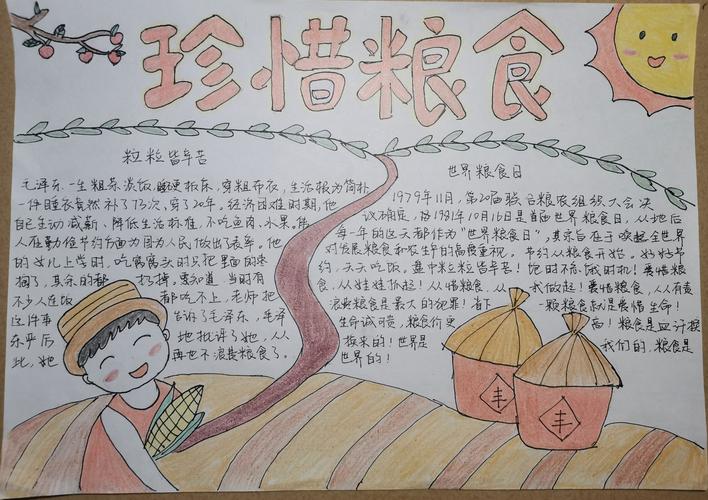 珍惜粮食
粒粒皆辛苦
毛泽东一生粗茶淡饭,睡硬板床,穿粗布衣,生活极为简朴
一件睡衣竟然补了73次,穿了20年。经济困难时期,他
自己主动减薪、降低生活标准,不吃鱼肉、水果。伟
人在勤俭节约方面为国为人民做出了表率。他
的女儿上学时,吃窝窝头时只把里面的枣
摘了,其余的都扔掉。要知道,当时有
不少人连饭都吃不上,老师把
这件事告诉了毛泽东,毛泽
东严厉地批评了她,从
此,她再也不浪费粮食了。
世界粮食日
1979年11月,第20届联合粮农组织大会决
议确定,将1981年10月16日是首届世界粮食日,从此后
每一年的这天都作为“世界粮食日”,其宗旨在于唤起全世界
对发展粮食和农生的高度重视。节约从粮食开始。好好节
约,天天吃饭。盘中粒粒皆辛苦!饱时不忘饿时饥!爱惜粮
食,从娃娃抓起!从惜粮食,从我做起!爱惜粮食,从有麦
浪费粮食是最大的犯罪!省下一颗粮食就是爱惜生命!
生命诚可贵,粮食价更高!粮食是血汗换
换来的!世界是我们的,粮食是
世界的!
丰
丰